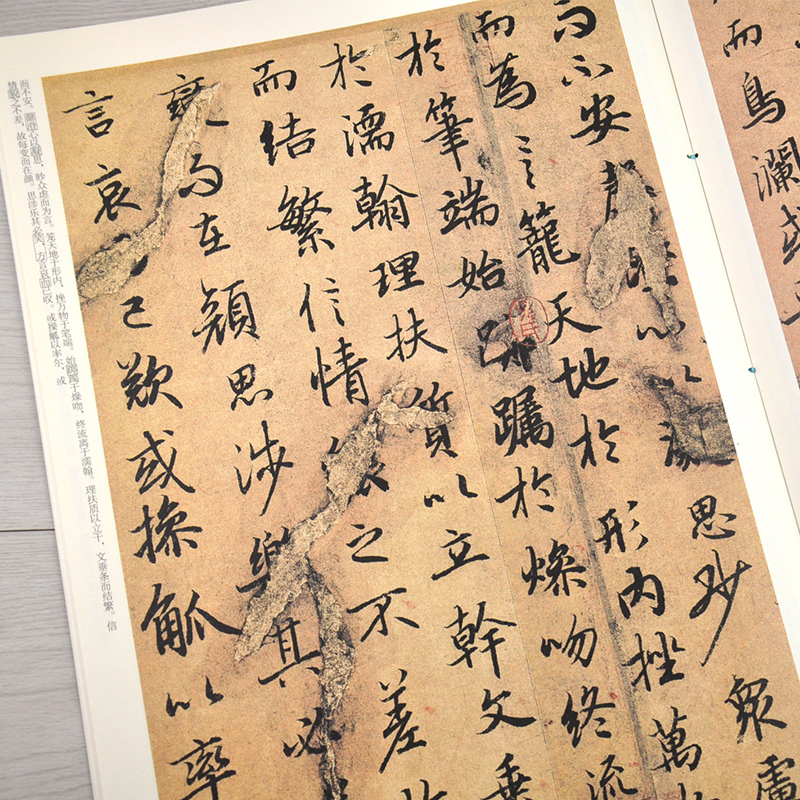 而鳥瀾或
而不安心以思眇眾慮
而為言籠天地於形內挫萬
於筆端始躑躅於燥吻終流
於濡翰理扶質以立幹文垂
而結繁信情之不差故
變而在顏思涉樂其必
言哀已歎或操觚以率
而不安。罄澄心以凝思，眇众虑而为言。笼天地于形内，挫万物于笔端。始踯躅于燥吻，终流离于濡翰。理扶质以立干，文垂条而结繁。信
情貌之不差，故每变而在颜。思涉乐其必笑，方言哀而已叹。或操觚以率尔，或